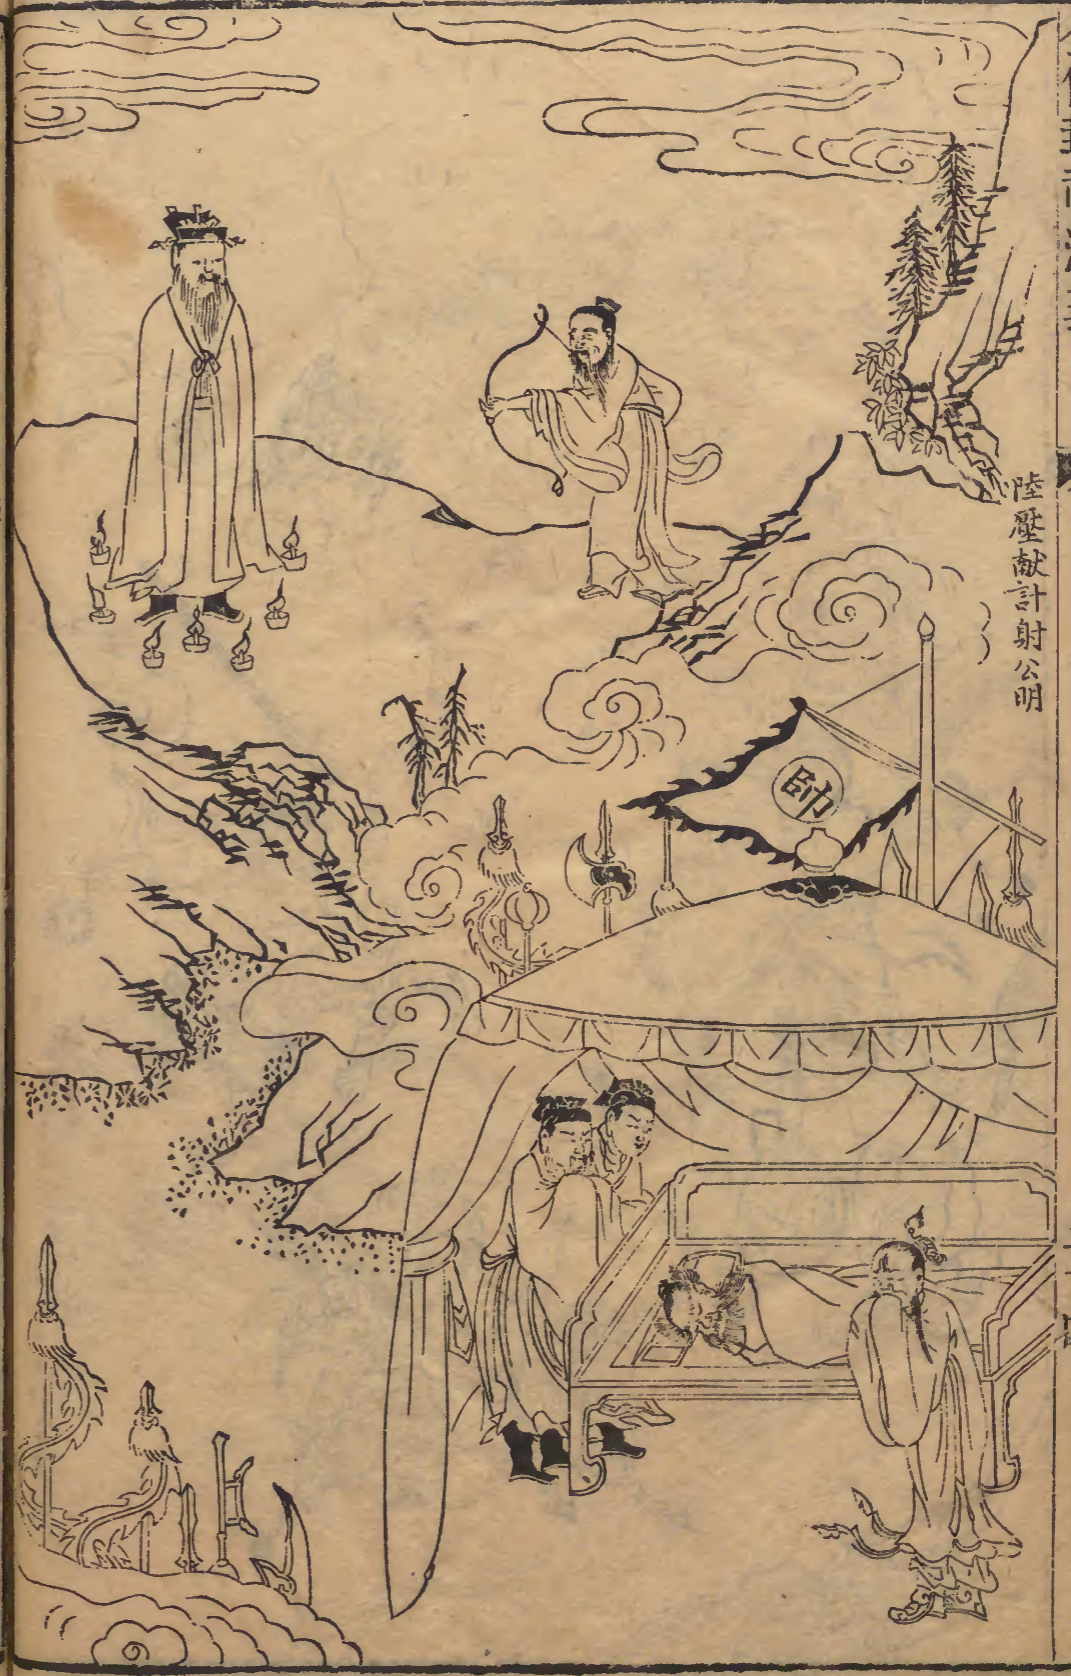 陸壓献計射公明
帥